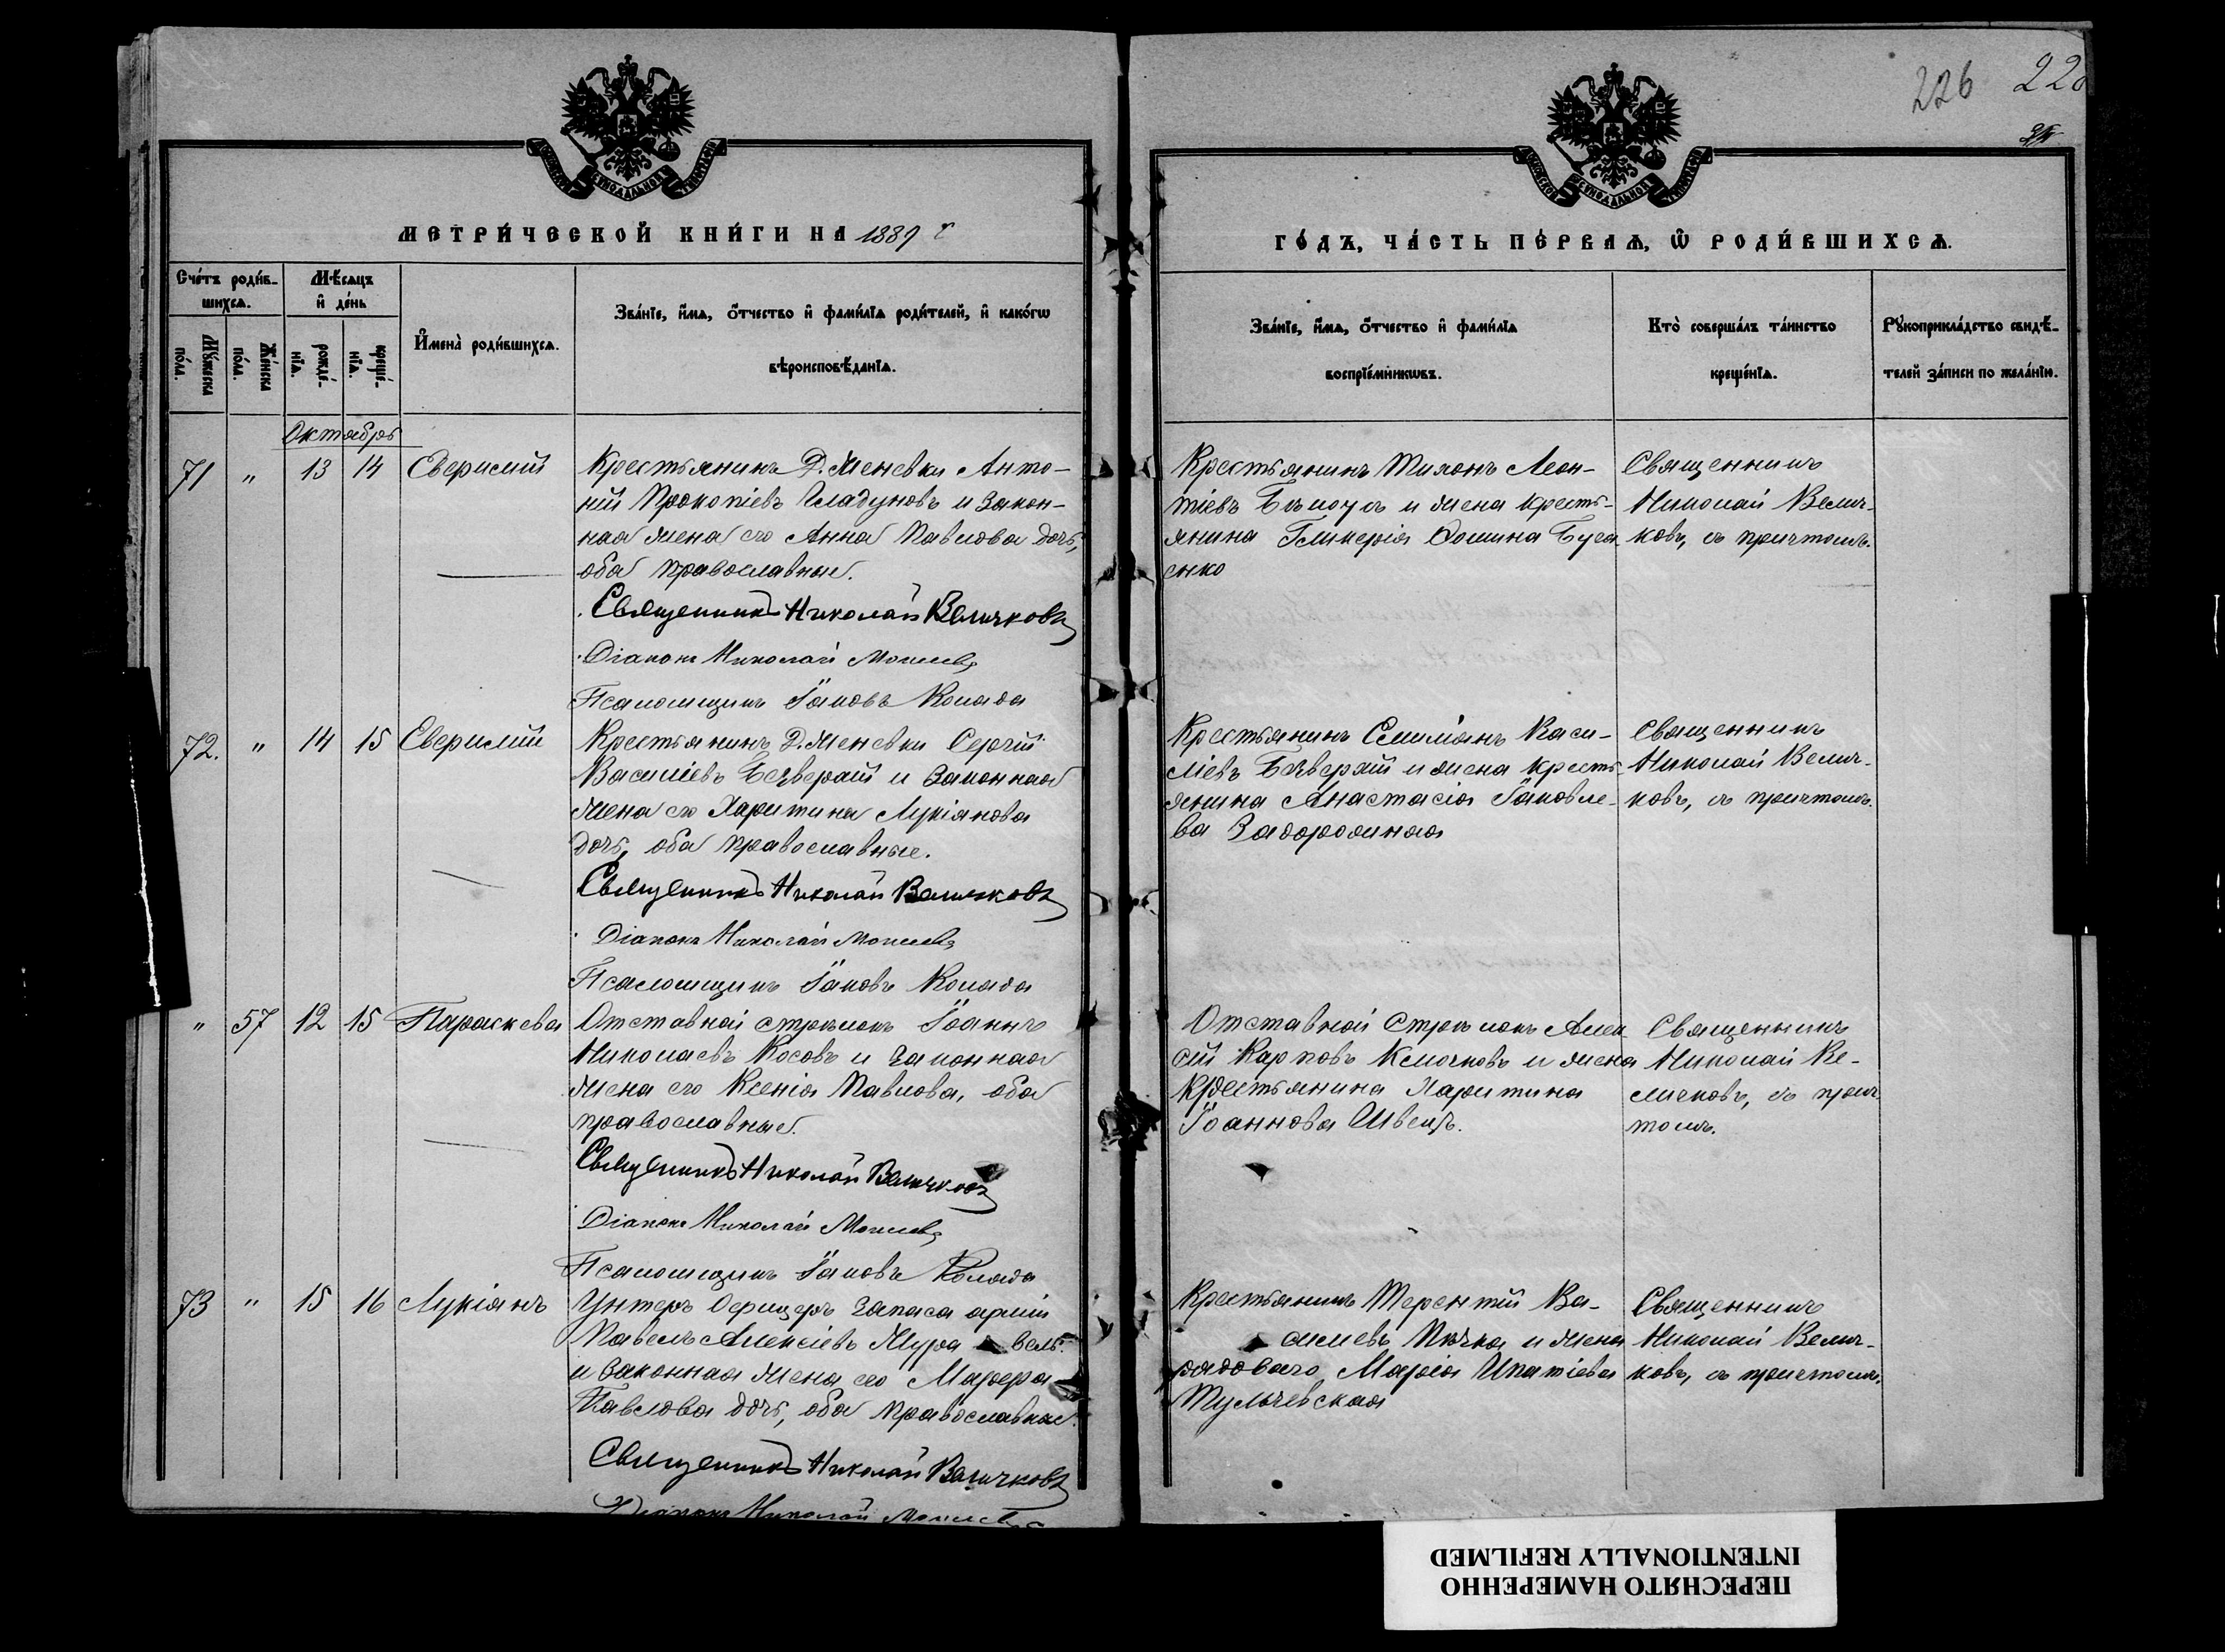 226
МЕТРИ́ЧЕСКОЙ КНИ́ГИ НА 1889 г
ГО́ДЪ, ЧА́СТЬ ПЕ́РВАѦ, Ѽ РОДИ́ВШИХСѦ.
Сче́тъ роди́в-
шихсѧ.
Мѣ́сѧцъ
и҆ де́нь
Мꙋ́жеска
по́ла.
Же́нска
по́ла.
рожде́-
нїѧ.
креще́-
нїѧ.
И҆мена̀ роди́вшихсѧ.
Зва́нїе, и҆́мѧ, ѻ҆́тчество и҆ фами́лїѧ роди́телей, и҆ како́гѡ
вѣроисповѣ́данїѧ.
Зва́нїе, и҆́мѧ, ѻ҆́тчество и҆ фами́лїѧ
воспрїе́мникѡвъ.
Кто̀ соверша́лъ та́инство
креще́нїѧ.
Рꙋкоприкла́дство свидѣ́-
телей за́писи по жела́нїю.
Октябрь
71 " 13 14
Крестьянинъ Д. Меневки Анто-
ній Прокопіевъ Гладуновъ и закон-
ная жена его Анна Павлова дочь,
оба православные.
Священникъ Николай Величковъ
Діаконъ Николай
Псаломщикъ Іаковъ Колада
Крестьянинъ Тихонъ Леон-
тіевъ Бѣлоусъ и жена кресть-
янина Гликерія Фомина
енко
Священникъ
Николай Велич-
ковъ, съ причтомъ.
72. " 14 15
Крестьянинъ Д. Меневки Сергій
Василіевъ Безверхій и законная
жена его Харитина Лукіанова
дочь, оба православные.
Священникъ Николай Величковъ
Діаконъ Николай
Псаломщикъ Іаковъ Колада
Крестьянинъ Симеонъ Васи-
ліевъ Безверхій и жена кресть-
янина Анастасія Іаковле-
ва Задорожная
Священникъ
Николай Велич-
ковъ, съ причтомъ.
" 57 12 15 Параскева
Отставной стрѣлокъ Іоаннъ
Николаевъ Косовъ и законная
жена его Ксенія Павлова, оба
православные.
Священникъ Николай Величковъ
Діаконъ Николай
Псаломщикъ Іаковъ Колада
Отставной Стрѣлокъ Алек-
сій Карповъ Клочковъ и жена
Крестьянина Харитина
Іоаннова Швецъ.
Священникъ
Николай Ве-
личковъ, съ прич-
томъ.
73 " 15 16 Лукіанъ
Унтеръ Офицеръ запаса арміи
Павелъ Алексіевъ
и законная жена его Марфа
Павлова дочь, оба православные.
Священникъ Николай Величковъ
Діаконъ Николай
Крестьянинъ Терентій Ва-
силіевъ и жена
рядоваго Марія Ипатіева
Тульчевская
Священникъ
Николай Велич-
ковъ, съ причтомъ.
ПЕРЕСНЯТО НАМЕРЕННО
INTENTIONALLY REFILMED